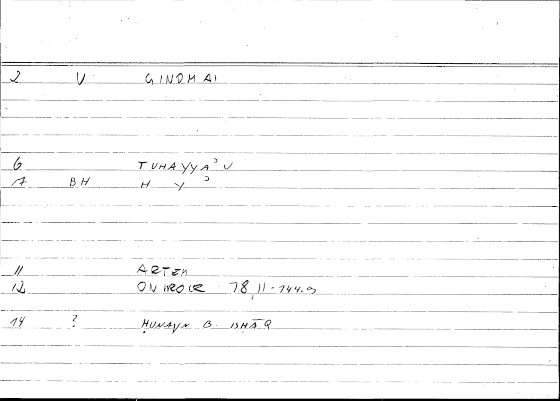 2 V GINOMAI
6 TUHAYYAʾU
7 BH H Y ʾ
11 ARTEM
12 ONIROCR 78,11-144.9
14 ? ḤUNAYN B. ISḤĀQ